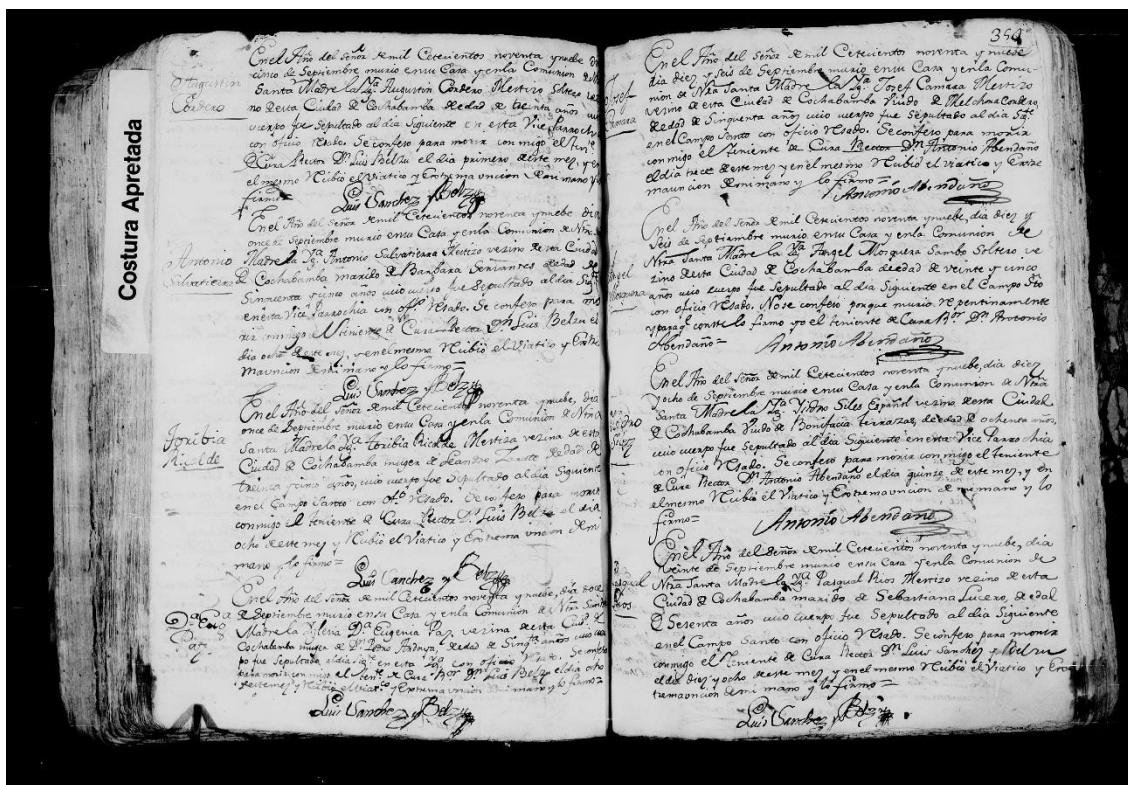 Costura Apretada
Augustin
Cordero
En el Año del Señor de mil Cetecientos noventa y nuebe dia
cinco de Septiembre murio en su Casa y en la Comunion de
Santa Madre la Yga. Augustin Cordero Mestizo Soltero
no de esta Ciudad de Cochabamba de edad de treinta años
cuerpo fue Sepultado al dia Siguiente en esta Vice Parrochia
con oficio resado. Se confeso para morir con migo el
de Cura Rector Dn. Luis Belzu el dia primero de este mes, y en
el mesmo recibió el Viatico y Extremauncion de mi mano y lo
firmo=
Luis Sanchez y Belzu
Antonio
Salvatierra
En el Año del Señor de mil Cetecientos noventa y nuebe, dia
once de Septiembre murio en su Casa y en la Comunion de Ntra
Madre la Yga. Antonio Salvatierra Mestizo vezino de esta Ciudad
de Cochabamba marido de Barbara Servantes de edad de
Sinquenta y cinco años cuio cuerpo fue Sepultado al dia Sigte.
en esta Vice Parrochia con ofo. resado. Se confeso para mo
rir conmigo el teniente de Cura Rector Dn. Luis Belzu el
dia ocho de este mes, y en el mesmo recibió el Viatico y Extre
mauncion de mi mano y lo firmo=
Luis Sanchez y Belzu
Toribia
Ricalde
En el Año del Señor de mil Cetecientos noventa y nuebe, dia
once de Septiembre murio en su Casa y en la Comunion de Ntra
Santa Madre la Ya. Toribia Ricalde Mestiza vezina de esta
Ciudad de Cochabamba muger de Leandro Zarate de edad de
treinta y cinco años, cuio cuerpo fue Sepultado al dia Siguiente
en el Campo Santo con ofo. resado. Se confeso para morir
conmigo el teniente de Cura Rector Dn. Luis Belzu el dia
ocho de este mes y recibió el Viatico y Extrema uncion de mi
mano y lo firmo=
Luis Sanchez y Belzu
Da. Euga.
Paz
En el Año del Señor de mil Cetecientos noventa y nuebe, dia doce
de Septiembre murio en su Casa y en la Comunion de Ntra Santa
Madre la Yglesia Da. Eugenia Paz, vezina de esta Ciud. de
Cochabamba muger de Dn. Pedro de edad de años cuio cuer
po fue Sepultado al dia Sigte. en esta con oficio resado. Se confeso
para morir conmigo el tente. de Cura Ror. Dn. Luis Belzu el dia ocho
de este mes y recibió el Viatco. y Extremauncion de mi mano y lo firmo=
Luis Sanchez y Belzu
354
Josef
Camara
En el Año del Señor de mil Cetecientos noventa y nuebe
dia diez y Seis de Septiembre murio en su Casa y en la Comu
nion de Ntra Santa Madre la Yga. Josef Camara Mestizo
vezino de esta Ciudad de Cochabamba Viudo de Melchora Cordero,
de edad de Sinquenta años cuio cuerpo fue Sepultado al dia Sigte.
en el Campo Santo con oficio resado. Se confeso para morir
con migo el Teniente de Cura Rector Dn. Antonio Abendaño
el dia trece de este mes y en el mesmo recibió el Viatico y Extre
mauncion de mi mano y lo firmo=
Antonio Abendaño
Angel
En el Año del Señor de mil Cetecientos noventa y nuebe, dia diez y
Seis de Septiembre murio en su Casa y en la Comunion de
Ntra Santa Madre la Yga. Angel Sambo Soltero ve
zino de esta Ciudad de Cochabamba de edad de veinte y cinco
años cuio cuerpo fue Sepultado al dia Siguiente en el Campo Sto
con oficio resado. No se confeso porque murio repentinamente
y para qe. conste lo firmo yo el teniente de Cura Ror. Dn. Antonio
Abendaño=
Antonio Abendaño
Ysidro
Siles
En el Año del Señor de mil Cetecientos noventa y nuebe, dia diez
y ocho de Septiembre murio en su Casa y en la Comunion de Ntra
Santa Madre la Yga. Ysidro Siles Español vezino de esta Ciudad
de Cochabamba Viudo de Bonifacia terrazas, de edad de ochenta años,
cuio cuerpo fue Sepultado al dia Siguiente en esta Vice Parrochia
con oficio resado. Se confeso para morir con migo el teniente
de Cura Rector Dn. Antonio Abendaño el dia quinze de este mes, y en
el mesmo recibió el Viatico y Extremauncion de mi mano y lo
firmo=
Antonio Abendaño
Pasqual
Rios
En el Año del Señor de mil Cetecientos noventa y nuebe, dia
veinte de Septiembre murio en su Casa y en la Comunion de
Ntra Santa Madre la Yga. Pasqual Rios Mestizo vezino de esta
Ciudad de Cochabamba marido de Sebastiana Lucero, de edad
de Sesenta años cuio cuerpo fue Sepultado al dia Siguiente
en el Campo Santo con oficio resado. Se confeso para morir
conmigo el Teniente de Cura Rector Dn. Luis Sanchez y Belzu
el dia diez y ocho de este mes y en el mesmo recibió el Viatico y Ex
tremauncion de mi mano y lo firmo=
Luis Sanchez y Belzu